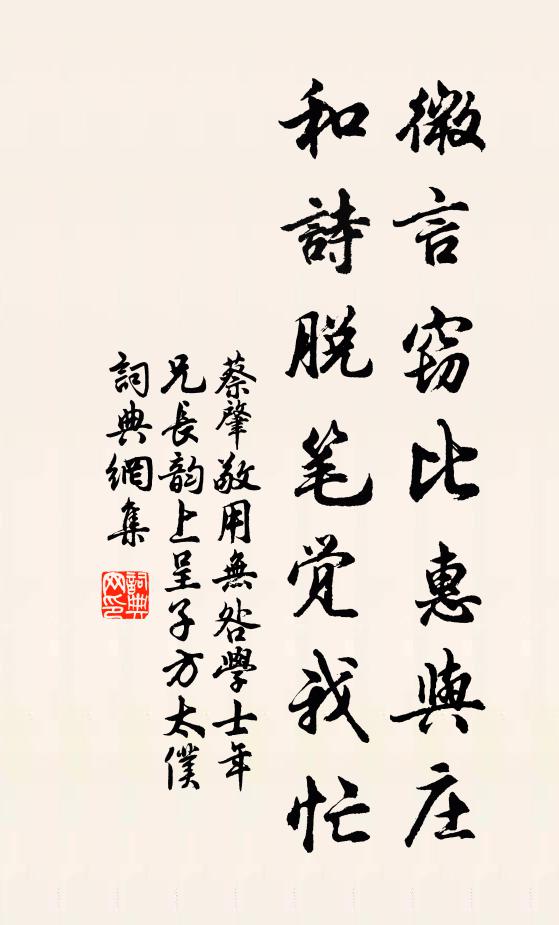 微言窃比惠與庄
和詩脱笔觉我忙
蔡肇敬用無咎學士年
兄長韵上呈子方太僕
詞典網集
詞典
网印